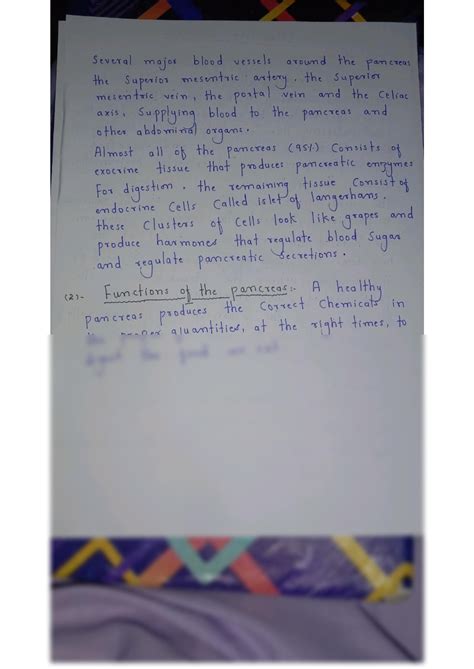 Several major blood vessels around the pancreas
the Superior mesentric artery, the Superier
mesentric vein, the portal vein and the Celiac
axis, Supplying blood to the pancreas and
other abdominal organs.
Almost all of the pancreas (95%) Consists of
exocrine tissue that produces pancreatic enzymes
For digestion. the remaining tissue Consist of
endocrine Cells Called islet of langerhans.
these Clusters of Cells look like grapes and
produce harmones that regulate blood Sugar
and regulate pancreatic Secretions.
(2):- Functions of the pancreas:- A healthy
pancreas produces the Correct Chemicals in
quantities, at the right times, to